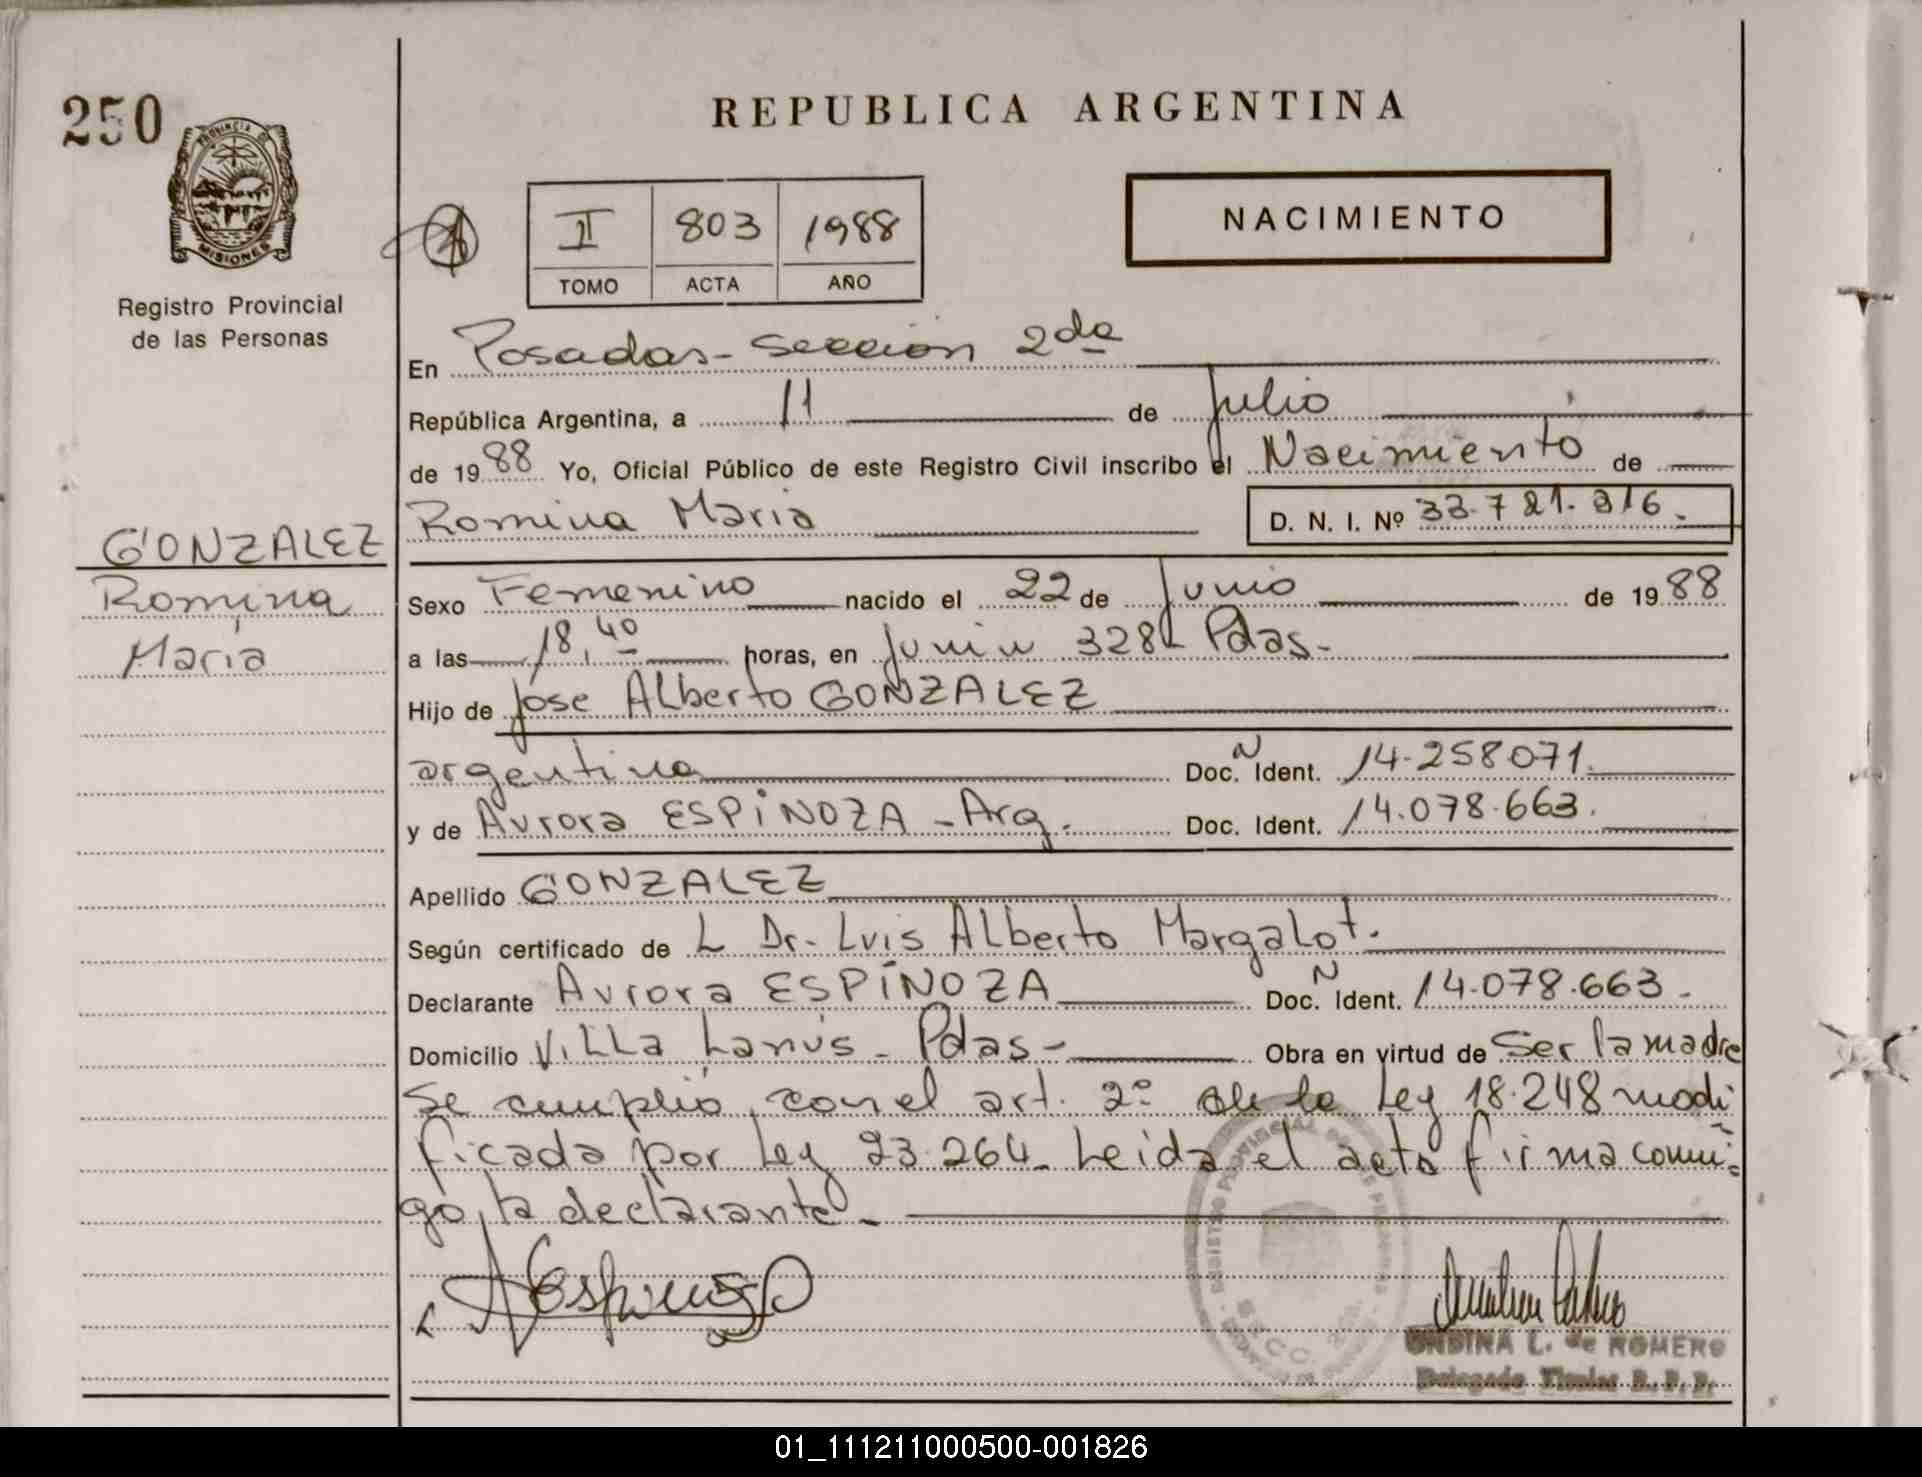 250
REPUBLICA ARGENTINA
PROVINCIA DE
MISIONES
Registro Provincial
de las Personas
II 803 1988
TOMO ACTA AÑO
NACIMIENTO
En Posadas - Sección 2da
República Argentina, a 11 de Julio
de 1988 Yo, Oficial Público de este Registro Civil inscribo el Nacimiento de
Romina Maria D. N. I. Nº 33.721.316.
GONZALEZ
Romina
Maria
Sexo Femenino nacido el 22 de Junio de 1988
a las 18,40 horas, en Junin 328 Pdas.-
Hijo de Jose Alberto GONZALEZ
argentino Doc. N Ident. 14.258071.
y de Aurora ESPINOZA - Arg. Doc. Ident. 14.078.663.
Apellido GONZALEZ
Según certificado de L Dr. Luis Alberto Margalot.
Declarante Aurora ESPINOZA Doc. N Ident. 14.078.663.-
Domicilio Villa Lanús - Pdas - Obra en virtud de Ser la madre
Se cumplió con el art. 2º de la Ley 18.248 modi
ficada por Ley 23.264. Leída el acta firma conmi-
go, la declarante.-
AEspinoza
ONDINA L. de ROMERO
Delegada Titular R. P. P.
01_111211000500-001826